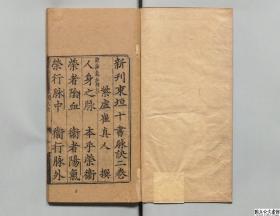 新刊東垣十書脉訣二卷
紫虛崔真人 撰
人身之脉 本乎榮衛
榮者陰血 衛者陽氣
榮行脉中 衛行脉外